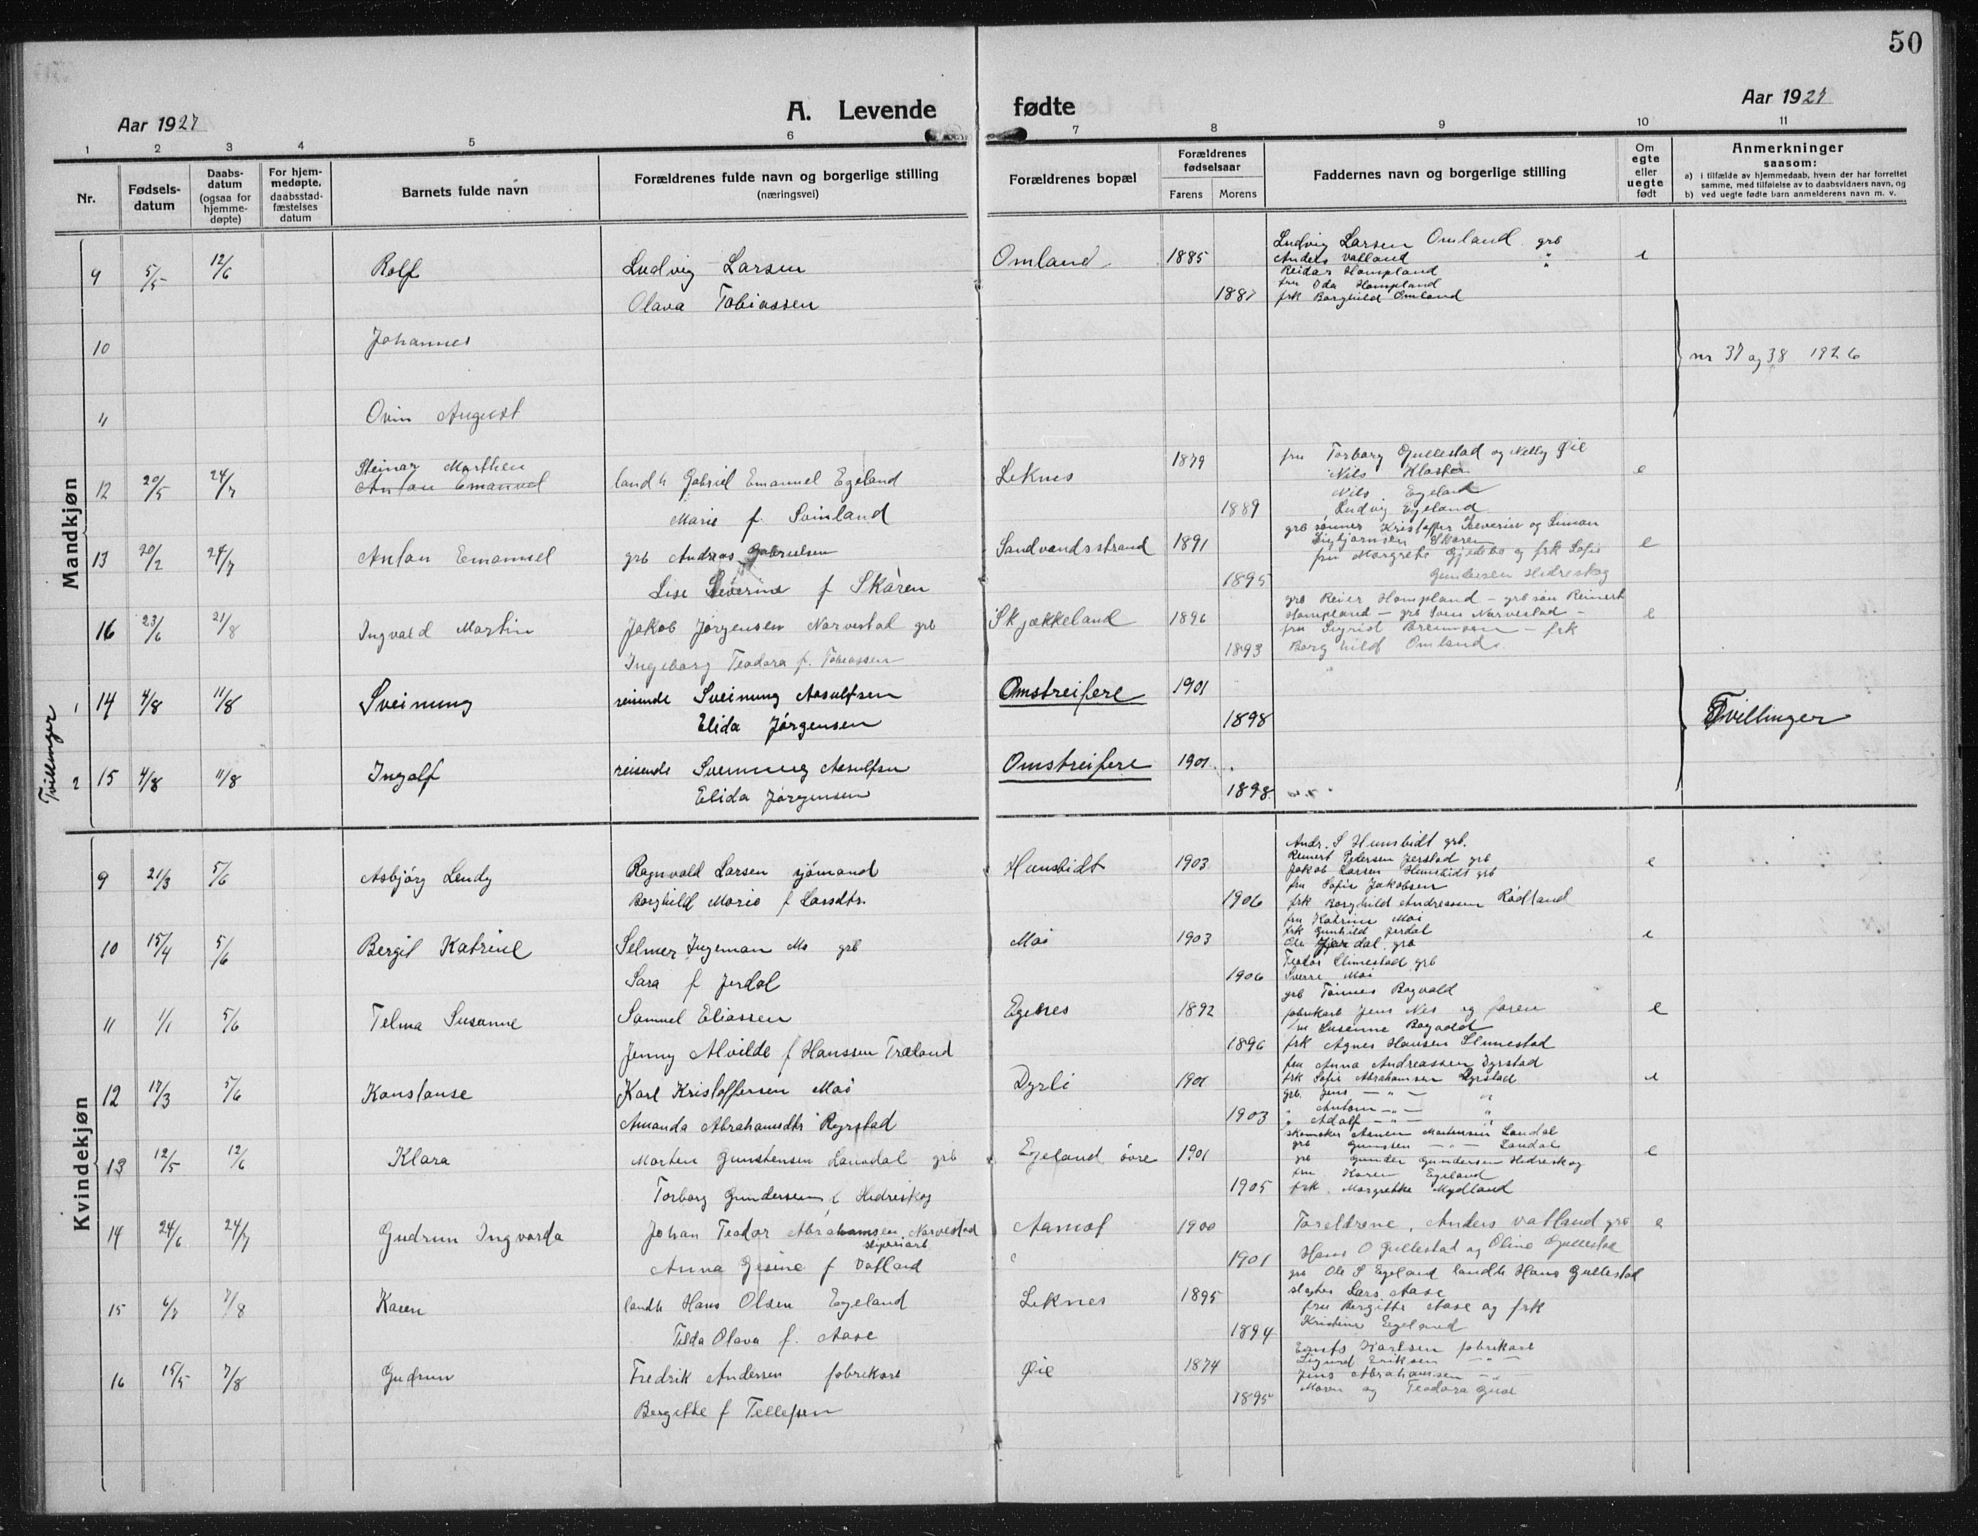 50
Aar 1927
A. Levende fødte
Aar 1927
1 2 3 4 5 6 7 8 9 10 11
Nr.
Fødsels-
datum
Daabs-
datum
(ogsaa for
hjemme-
døpte)
For hjem-
medøpte,
daabsstad-
fæstelses
datum
Barnets fulde navn
Forældrenes fulde navn og borgerlige stilling
(næringsvei)
Forældrenes bopæl
Forældrenes
fødselsaar
Farens Morens
Faddernes navn og borgerlige stilling
Om
egte
eller
uegte
født
Anmerkninger
saasom:
a) i tilfælde av hjemmedaab, hvem der har forrettet
samme, med tilføielse av to daabsvidners navn, og
b) ved uegte fødte barn anmelderens navn m. v.
Mandkjøn
9 5/5 12/6 Rolf Ludvig Larsen Omland 1885 e
Olava Tobiassen 1887
Ludvig Larsen Omland grb
Anders Vatland "
Reidar Hompland "
fru Oda Hompland
frk Borghild Omland
10 Johannes
nr 37 og 38 1926
11 Ovin August
Steinar Marthen
12 20/5 24/7 Anton Emanuel landh Gabriel Emanuel Egeland Leknes 1879 e
Marie f. Svinland 1889
fru Torborg Gullestad og Nelly Øie
Nils Klaster
Nils Egeland
Ludvig Egeland
13 20/2 24/7 Anton Emanuel grb Andreas Gabrielsen Sandvandsstrand 1891 e
Lise Severine f Skåren 1895
grb sønner Kristoffer Severin og Simon
Sigbjørnsen Skåren
fru Margrete Gjedsbo og frk Sofie
Gundersen Hidreskog
16 23/6 21/8 Ingvald Martin Jakob Jørgensen Narvestad grb Skjækkeland 1896 e
Ingeborg Teodora f. Tobiassen 1893
grb Reier Hompland - grb søn Reinert
Hompland - grb Sven Narvestad -
fru Sigrid - frk
Borghild Omland.
Tvillinger
1 14 4/8 11/8 Sveinung reisende Sveinung Aasulfsen Omstreifere 1901
Elida Jørgensen 1898
Tvillinger
2 15 4/8 11/8 Ingolf reisende Sveinung Aasulfsen Omstreifere 1901
Elida Jørgensen 1898
Kvindekjøn
9 21/3 5/6 Asbjørg Lendy Ragnvald Larsen sjømand Hunsbidt 1903 e
Borghild Marie f Larsdtr. 1906
Andr. S Hunsbidt grb.
Reinert Pedersen Jerstad grb
Jakob Larsen Hunsbidt grb
fru Sofie Jakobsen
frk Borghild Andreassen Rødland
10 15/4 5/6 Bergit Katrine Selmer Ingeman Mo grb Moi 1903 e
Sara f Jerdal 1906
fru Katrine Moi
frk Gunhild Jerdal
Ole Jerdal grb
Teodor Slimestad grb
Sverre Moi
11 1/1 5/6 Telma Susanne Samuel Eliassen Egenes 1892 e
Jenny Alvilde f Hanssen Træland 1896
grb Tønnes Bogvald
fabrikarb Jens Nes og
fru Susenne Bogvald
frk Agnes Hansen Slimestad
12 17/3 5/6 Konstanse Karl Kristoffersen Moi Dyrli 1901 e
Amanda Abrahamsdtr Ryrstad 1903
fru Anna Andreassen Dyrstad
frk Sofie Abrahamsen Dyrstad
grb. Jens - " - "
" Anton - " - "
" Adolf - " - "
13 12/5 12/6 Klara Morten Gunstensen Landdal grb Egeland övre 1901 e
Torborg Gundersen f Hidreskog 1905
skomaker Asmen Martensen Landal
grb Gunsten - " - Landal
grb Gunder Gundersen Hidreskog
fru Karen Egeland
frk. Margrethe Mydland
14 24/6 24/7 Gudrun Ingvarda Johan Teodor Abrahamsen Narvestad Aamot 1900 e
Anna Gesine f Vatland 1901
Foreldrene, Anders Vatland grb
Hans O Gullestad og Oline Gullestad
15 6/7 7/8 Karen landh Hans Olsen Egeland Leknes 1895
Tilda Olava f. Aase 1894
grb Ole S Egeland landh Hans Gullestad
slagter Lars Aase
fru Bergitte Aase og frk
Kristine Egeland
16 15/5 7/8 Gudrun Fredrik Andersen fabrikarb Øie 1874
Bergitte f Tellefsen 1895
Karlsen fabrikarb
Sigurd Eriksen - " -
Jens Abrahamsen - " -
Maren og Teodora Gusе